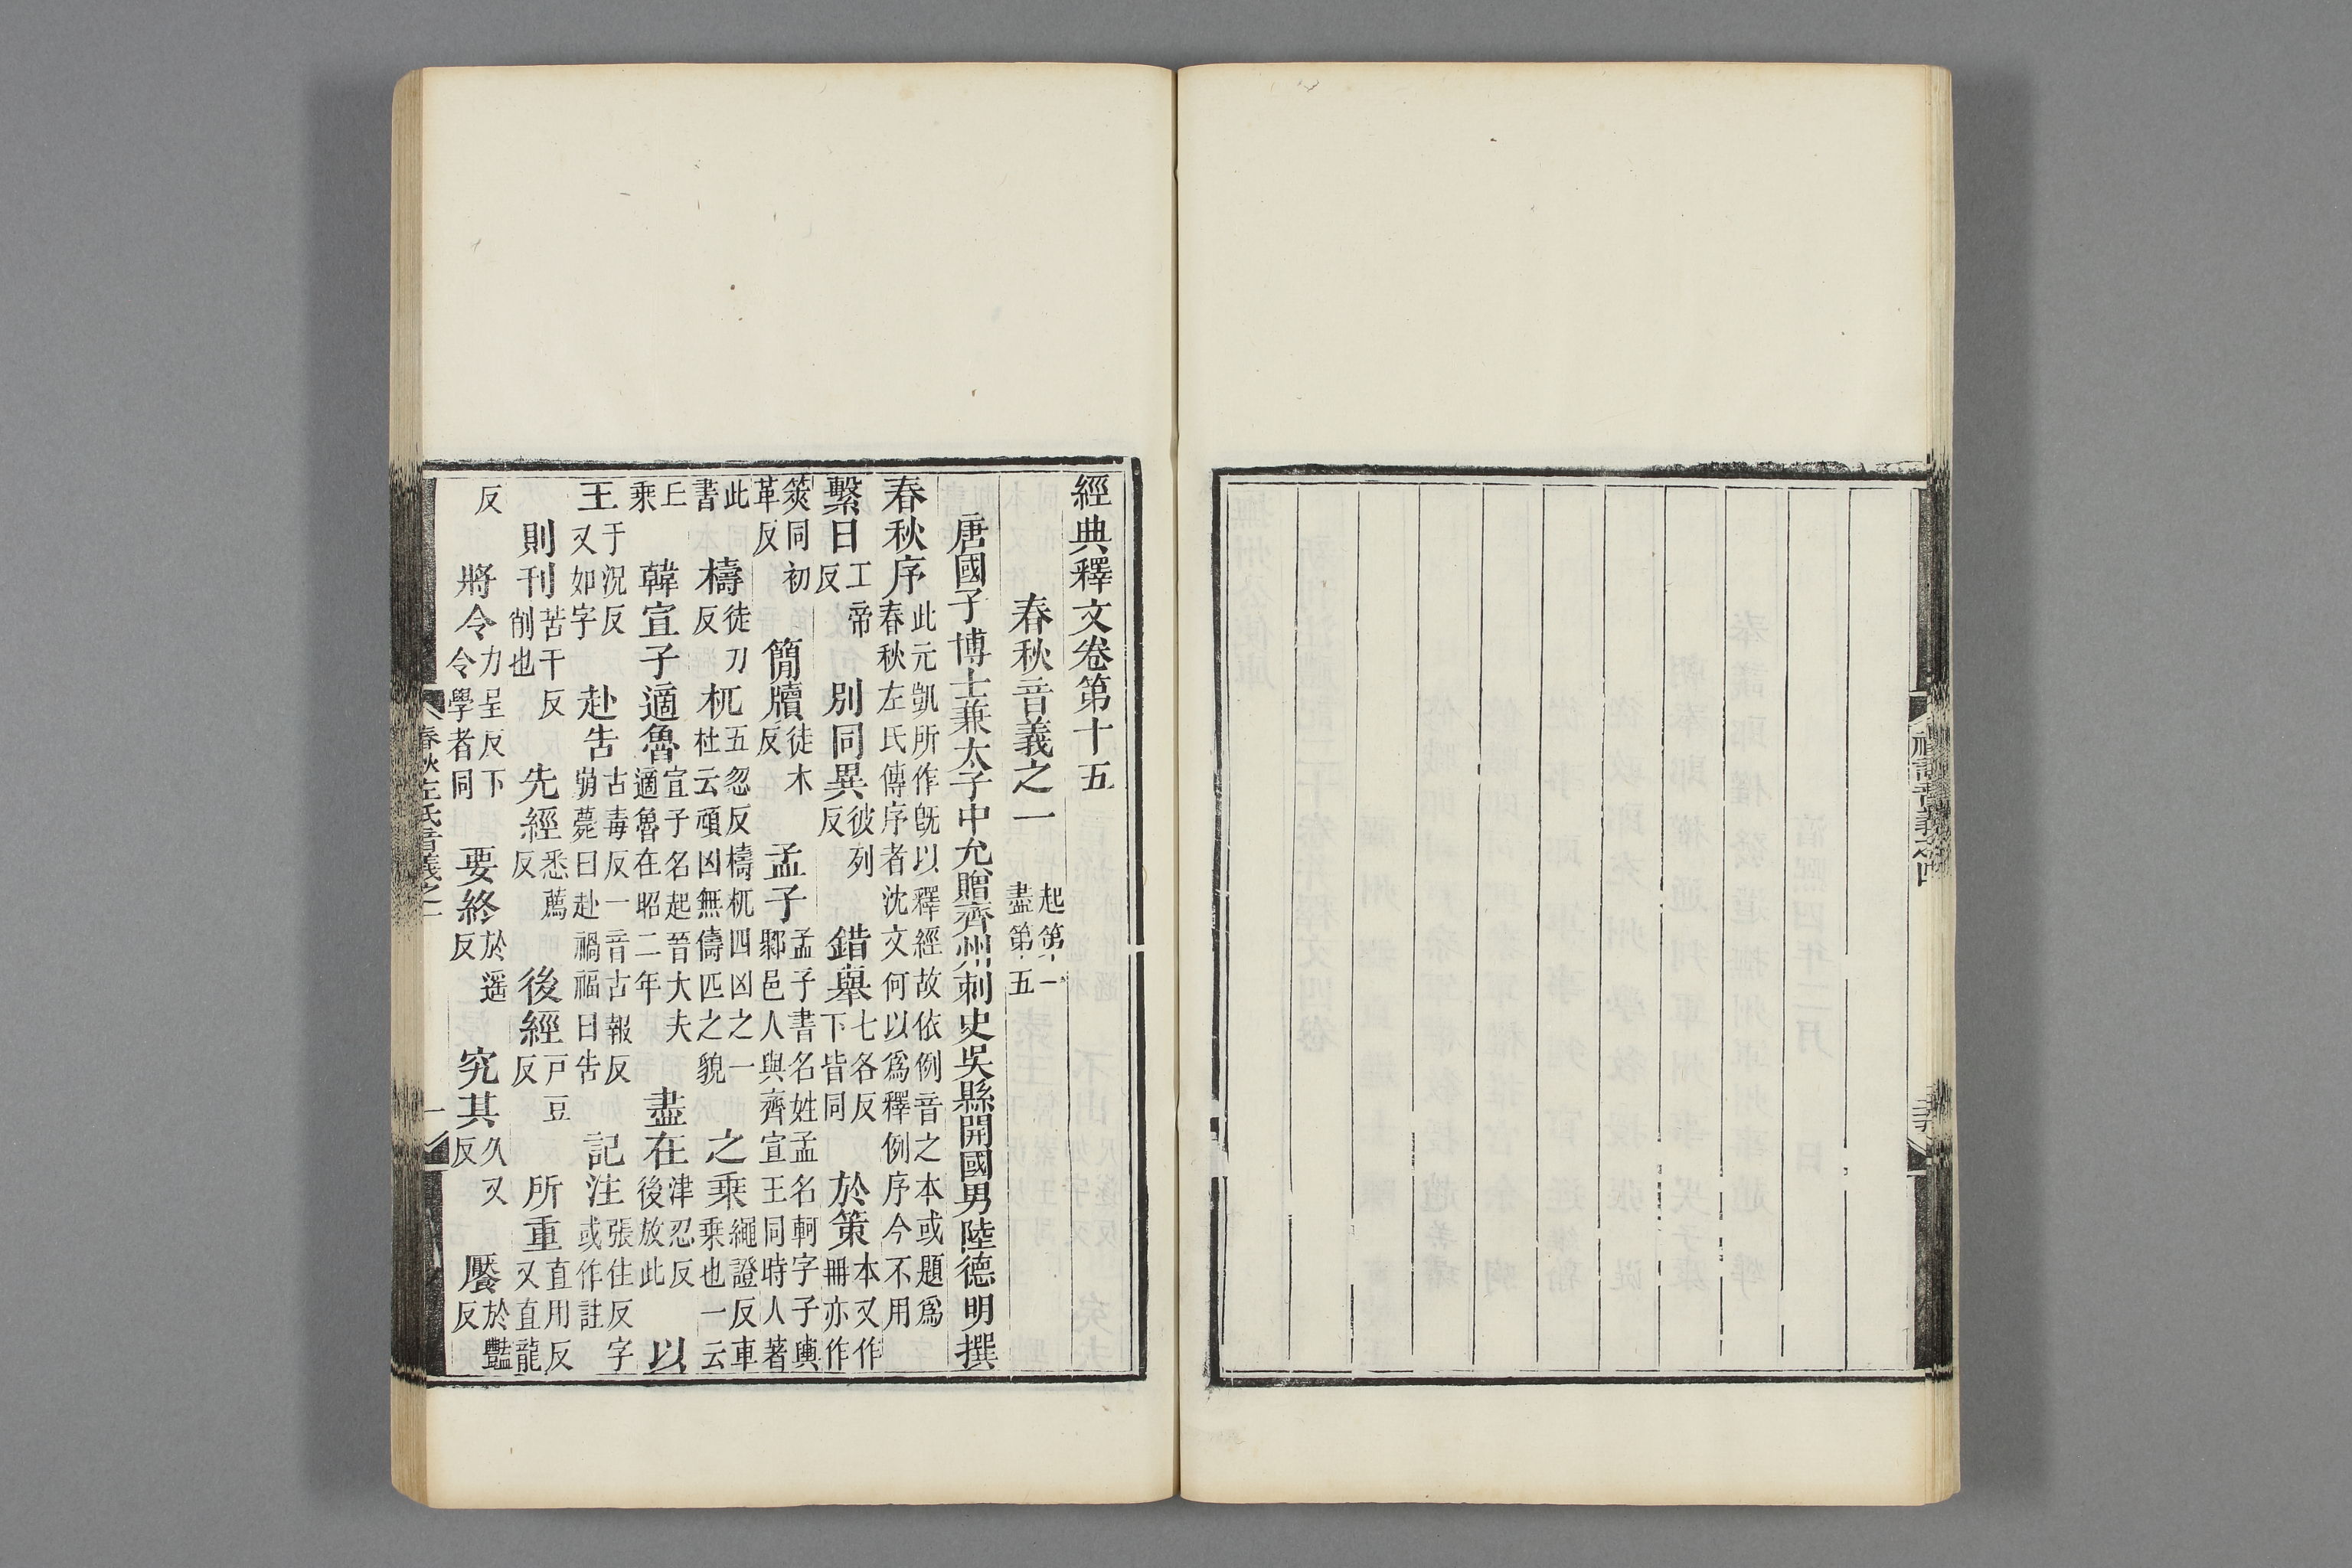 禮記音義卷四
經典釋文卷第十五
春秋音義之一 起第一盡第五
唐國子博士兼太子中允贈齊州刺史吳縣開國男陸德明撰
春秋序 此元凱所作旣以釋經故依例音之本或題爲春秋左氏傳序者沈文何以爲釋例序今不用
繫日 工帝反 別同異 彼列反 錯舉 七各反下皆同 於策 本又作冊亦作
筴同初革反 簡牘 徒木反 孟子 孟子書名姓孟名軻字子輿鄒邑人與齊宣王同時人著
此書 檮 徒刀反 杌 五忽反檮杌四凶之一杜云頑凶無儔匹之貌 之乘 繩證反車乘也一云
丘乘 韓宣子適魯 宣子名起晉大夫適魯在昭二年 盡在 津忍反後放此 以
王 于況反又如字 赴告 古毒反一音古報反崩薨曰赴禍福曰告 記注 張住反字或作註
則刊 苦干反削也 先經 悉薦反 後經 戶豆反 所重 直用反又直龍
反 將令 力呈反下令學者同 要終 於遥反 究其 久又反 饜 於豔反
春秋左氏音義之一 一